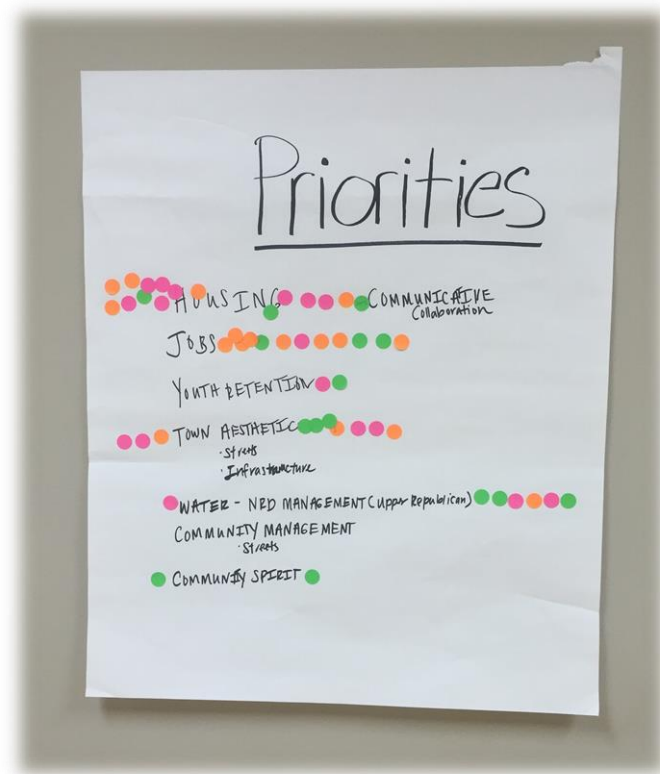 Priorities
HOUSING COMMUNICATIVE
Collaboration
JOBS
YOUTH RETENTION
TOWN AESTHETIC
· Streets
· Infrastructure
WATER - NRD MANAGEMENT (Upper Republican)
COMMUNITY MANAGEMENT
· Streets
COMMUNITY SPIRIT